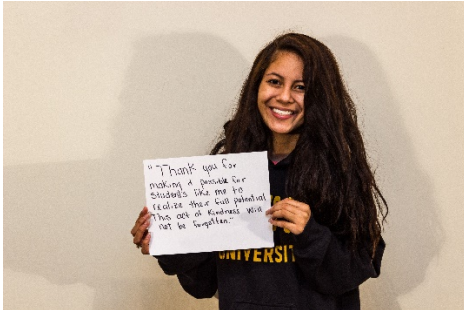 "Thank you for
making it possible for
students like me to
realize their full potential.
This act of kindness will
not be forgotten."
UNIVERSIT